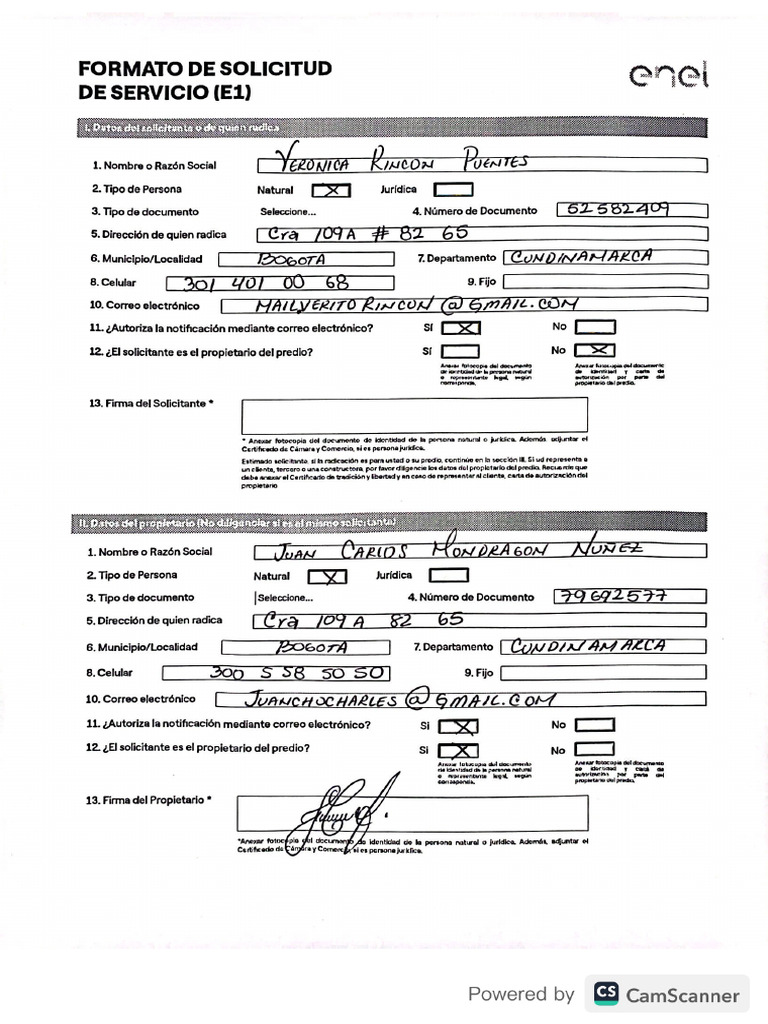 FORMATO DE SOLICITUD
DE SERVICIO (E1)
enel
I. Datos del solicitante o de quien radica
1. Nombre o Razón Social VERONICA RINCON PUENTES
2. Tipo de Persona Natural X Jurídica
3. Tipo de documento Seleccione... 4. Número de Documento 52582409
5. Dirección de quien radica Cra 109A # 82 65
6. Municipio/Localidad BOGOTA 7. Departamento CUNDINAMARCA
8. Celular 301 401 00 68 9. Fijo
10. Correo electrónico MAILVERITORINCON@GMAIL.COM
11. ¿Autoriza la notificación mediante correo electrónico? Sí X No
12. ¿El solicitante es el propietario del predio? Sí No X
Anexar fotocopia del documento de identidad de la persona natural o representante legal, según corresponda.
Anexar fotocopia del documento de identidad y carta de autorización por parte del propietario del predio.
13. Firma del Solicitante *
* Anexar fotocopia del documento de identidad de la persona natural o jurídica. Además, adjuntar el
Certificado de Cámara y Comercio, si es persona jurídica.
Estimado solicitante, si la radicación es para usted o su predio, continúe en la sección III. Si ud representa a
un cliente, tercero o una constructora, por favor diligencie los datos del propietario del predio. Recuerde que
debe anexar el Certificado de tradición y libertad y en caso de representar al cliente, carta de autorización del
propietario
II. Datos del propietario (No diligenciar si es el mismo solicitante)
1. Nombre o Razón Social JUAN CARLOS MONDRAGON NUÑEZ
2. Tipo de Persona Natural X Jurídica
3. Tipo de documento Seleccione... 4. Número de Documento 79692577
5. Dirección de quien radica Cra 109 A 82 65
6. Municipio/Localidad BOGOTA 7. Departamento CUNDINAMARCA
8. Celular 300 5 58 50 50 9. Fijo
10. Correo electrónico JUANCHOCHARLES@GMAIL.COM
11. ¿Autoriza la notificación mediante correo electrónico? Sí X No
12. ¿El solicitante es el propietario del predio? Sí X No
Anexar fotocopia del documento de identidad de la persona natural o representante legal, según corresponda.
Anexar fotocopia del documento de identidad y carta de autorización por parte del propietario del predio.
13. Firma del Propietario *
*Anexar fotocopia del documento de identidad de la persona natural o jurídica. Además, adjuntar el
Certificado de Cámara y Comercio, si es persona jurídica.
Powered by CS CamScanner